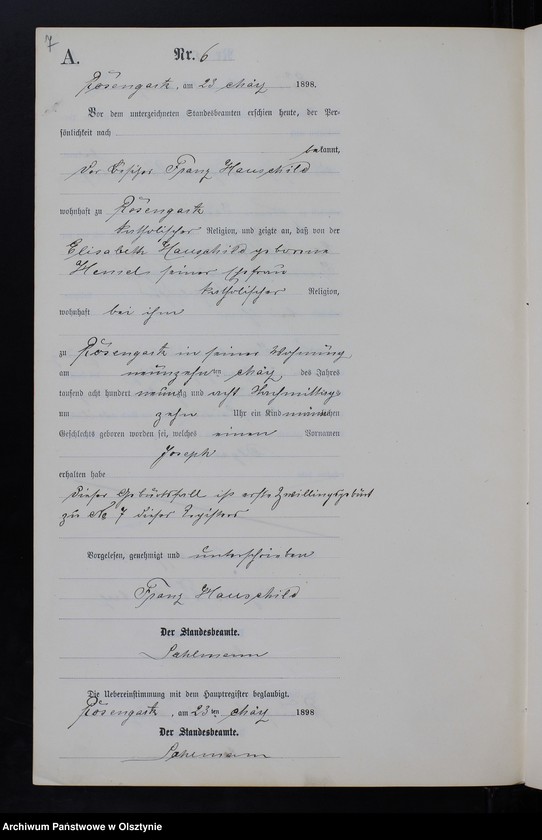 7
A.
Nr. 6
Rosengarth, am 23 May 1898.
Vor dem unterzeichneten Standesbeamten erschien heute, der Per-
sönlichkeit nach
bekannt,
der Besitzer Franz Hauschild
wohnhaft zu Rosengarth
katholischer Religion, und zeigte an, daß von der
Elisabeth Hauschild geborene
Hensel seiner Ehefrau
katholischer Religion,
wohnhaft bei ihm
zu Rosengarth in seiner Wohnung
am neunzehnten May des Jahres
tausend acht hundert neunzig und acht Nachmittags
um zehn Uhr ein Kind männlichen
Geschlechts geboren worden sei, welches einen Vornamen
Joseph
erhalten habe
Dieser Geburtsfall ist erste Zwillingsgeburt
zu No 7 dieses Registers
Vorgelesen, genehmigt und unterschrieben
Franz Hauschild
Der Standesbeamte.
Sahlmann
Die Uebereinstimmung mit dem Hauptregister beglaubigt.
Rosengarth, am 23ten May 1898
Der Standesbeamte.
Sahlmann
Archiwum Państwowe w Olsztynie